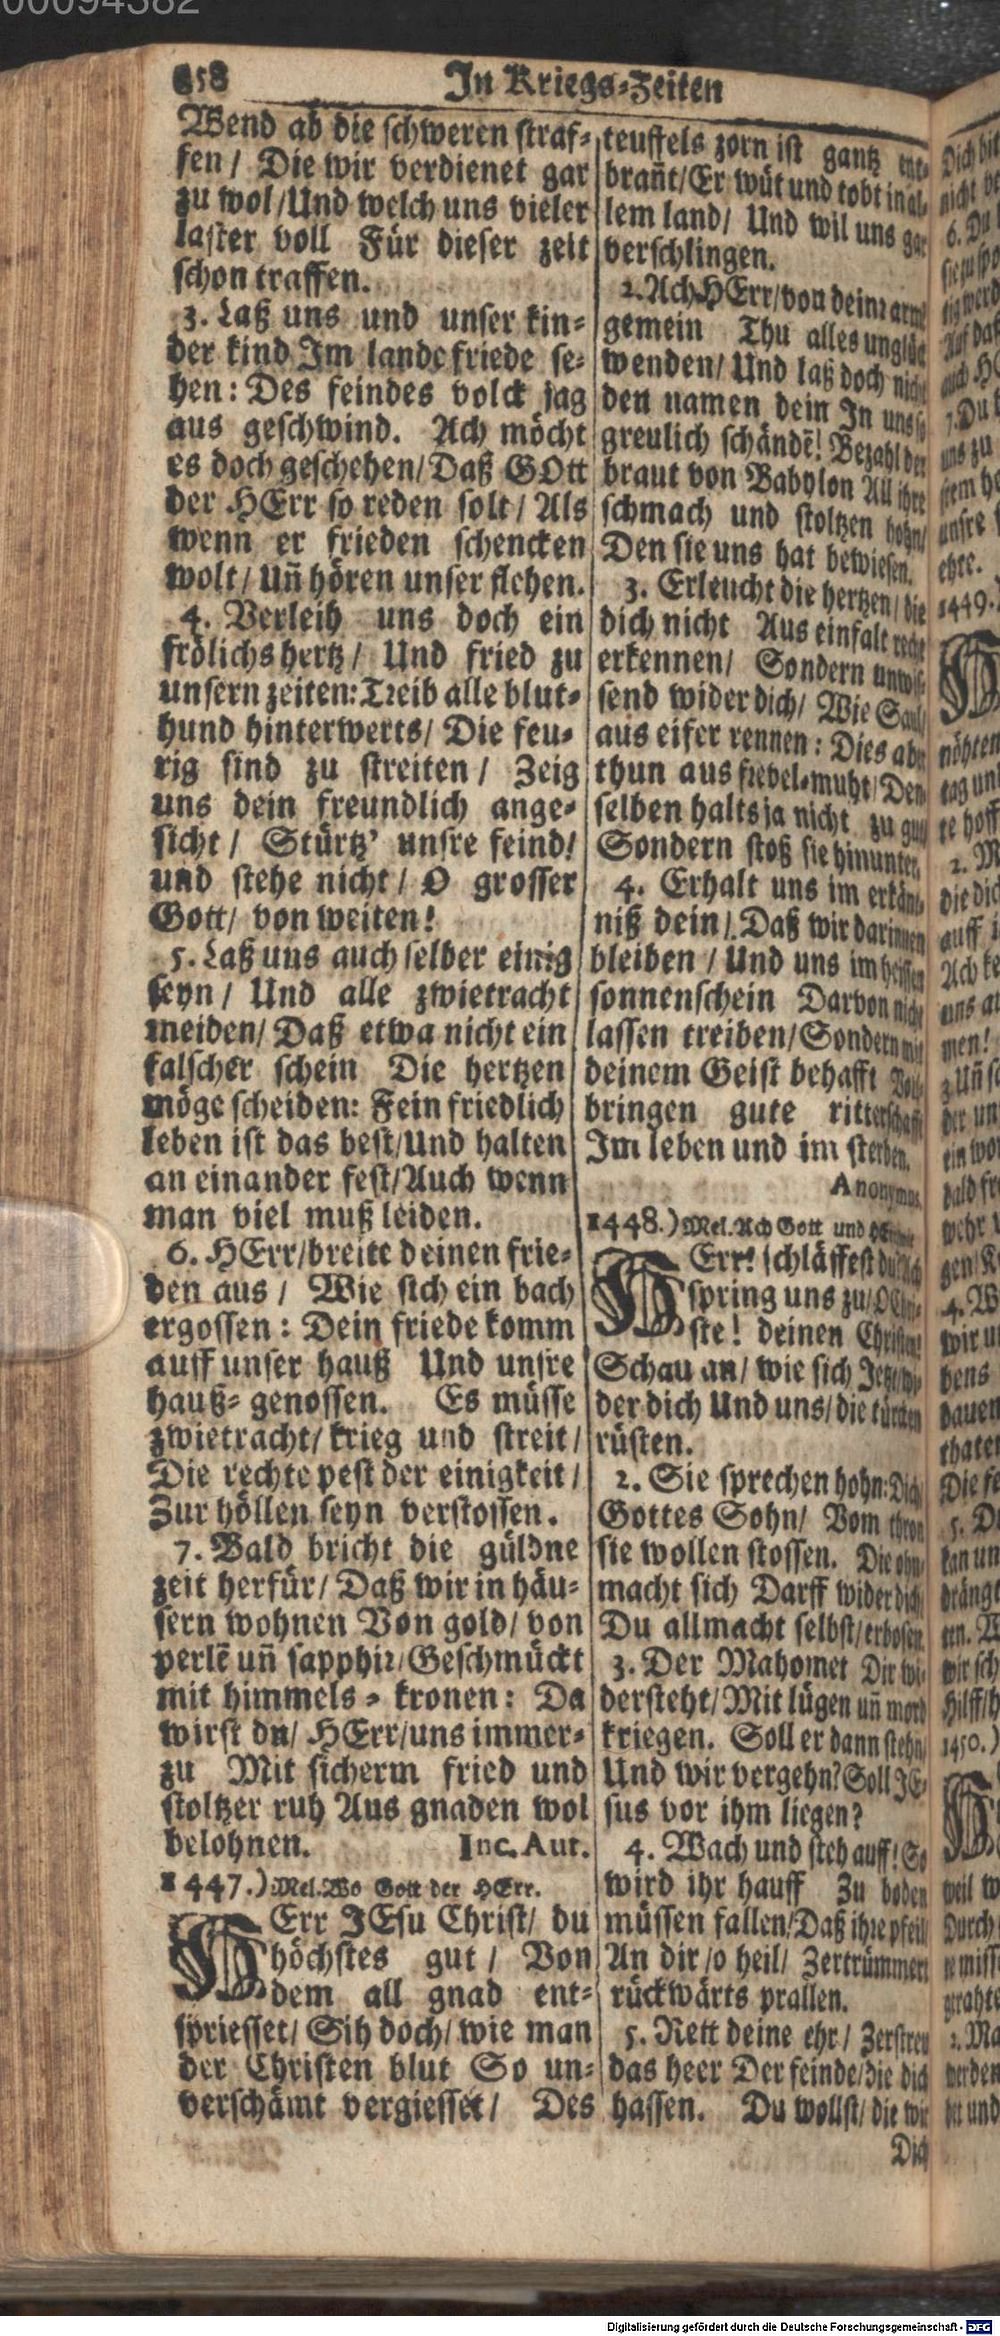 00094382
858 In Kriegs-Zeiten
Wend ab die schweren straf-
fen / Die wir verdienet gar
zu wol / Und welch uns vieler
laster voll Für dieser zeit
schon traffen.
3. Laß uns und unser kin-
der kind Im lande friede se-
hen: Des feindes volck jag
aus geschwind. Ach möcht
es doch geschehen / Daß GOtt
der HErr so reden solt / Als
wenn er frieden schencken
wolt / Uñ hören unser flehen.
4. Verleih uns doch ein
frölichs hertz / Und fried zu
unsern zeiten: Treib alle blut-
hund hinterwerts / Die feu-
rig sind zu streiten / Zeig
uns dein freundlich ange-
sicht / Stürtz' unsre feind /
und stehe nicht / O grosser
Gott / von weiten!
5. Laß uns auch selber einig
seyn / Und alle zwietracht
meiden / Daß etwa nicht ein
falscher schein Die hertzen
möge scheiden: Fein friedlich
leben ist das best / Und halten
an einander fest / Auch wenn
man viel muß leiden.
6. HErr / breite deinen frie-
den aus / Wie sich ein bach
ergossen: Dein friede komm
auff unser hauß Und unsre
hauß-genossen. Es müsse
zwietracht / krieg und streit /
Die rechte pest der einigkeit /
Zur höllen seyn verstossen.
7. Bald bricht die güldne
zeit herfür / Daß wir in häu-
sern wohnen Von gold / von
perlē uñ sapphir / Geschmückt
mit himmels-kronen: Da
wirst du / HErr / uns immer-
zu Mit sicherm fried und
stoltzer ruh Aus gnaden wol
belohnen. Inc. Aut.
1447.) Mel. Wo Gott der HErr.
HErr JEsu Christ / du
höchstes gut / Von
dem all gnad ent-
spriesset / Sih doch / wie man
der Christen blut So un-
verschämt vergiesset / Des
teuffels zorn ist gantz ent-
brañt / Er wüt und tobt in al-
lem land / Und wil uns gar
verschlingen.
2. Ach HErr / von deiner arme
gemein Thu alles unglück
wenden / Und laß doch nicht
den namen dein In uns so
greulich schändē! Bezahl der
braut von Babylon All ihre
schmach und stoltzen hohn /
Den sie uns hat bewiesen.
3. Erleucht die hertzen / die
dich nicht Aus einfalt recht
erkennen / Sondern unwis-
send wider dich / Wie Saul /
aus eifer rennen: Dies aber
thun aus frevel-muht / Den-
selben halts ja nicht zu gut /
Sondern stoß sie hinunter.
4. Erhalt uns im erkänt-
niß dein / Daß wir darinnen
bleiben / Und uns im heissen
sonnenschein Darvon nicht
lassen treiben / Sondern mit
deinem Geist behafft Voll-
bringen gute ritterschafft
Im leben und im sterben.
Anonymus.
1448.) Mel. Ach Gott und HErr
HErr! schläffest du? Ach
spring uns zu / O Chri-
ste! deinen Christen!
Schau an / wie sich Jetzt / wi-
der dich Und uns / die türcken
rüsten.
2. Sie sprechen hohn: Dich /
Gottes Sohn / Vom thron
sie wollen stossen. Die ohn-
macht sich Darff wider dich /
Du allmacht selbst / erbosen.
3. Der Mahomet Dir wi-
dersteht / Mit lügen uñ mord
kriegen. Soll er dann stehn /
Und wir vergehn? Soll JE-
sus vor ihm liegen?
4. Wach und steh auff! So
wird ihr hauff Zu boden
müssen fallen / Daß ihre pfeil /
An dir / o heil / Zertrümmert
rückwärts prallen.
5. Rett deine ehr / Zerstreu
das heer Der feinde / die dich
hassen. Du wollst / die wir
Dich
1449.
1450.)
Digitalisierung gefördert durch die Deutsche Forschungsgemeinschaft - DFG